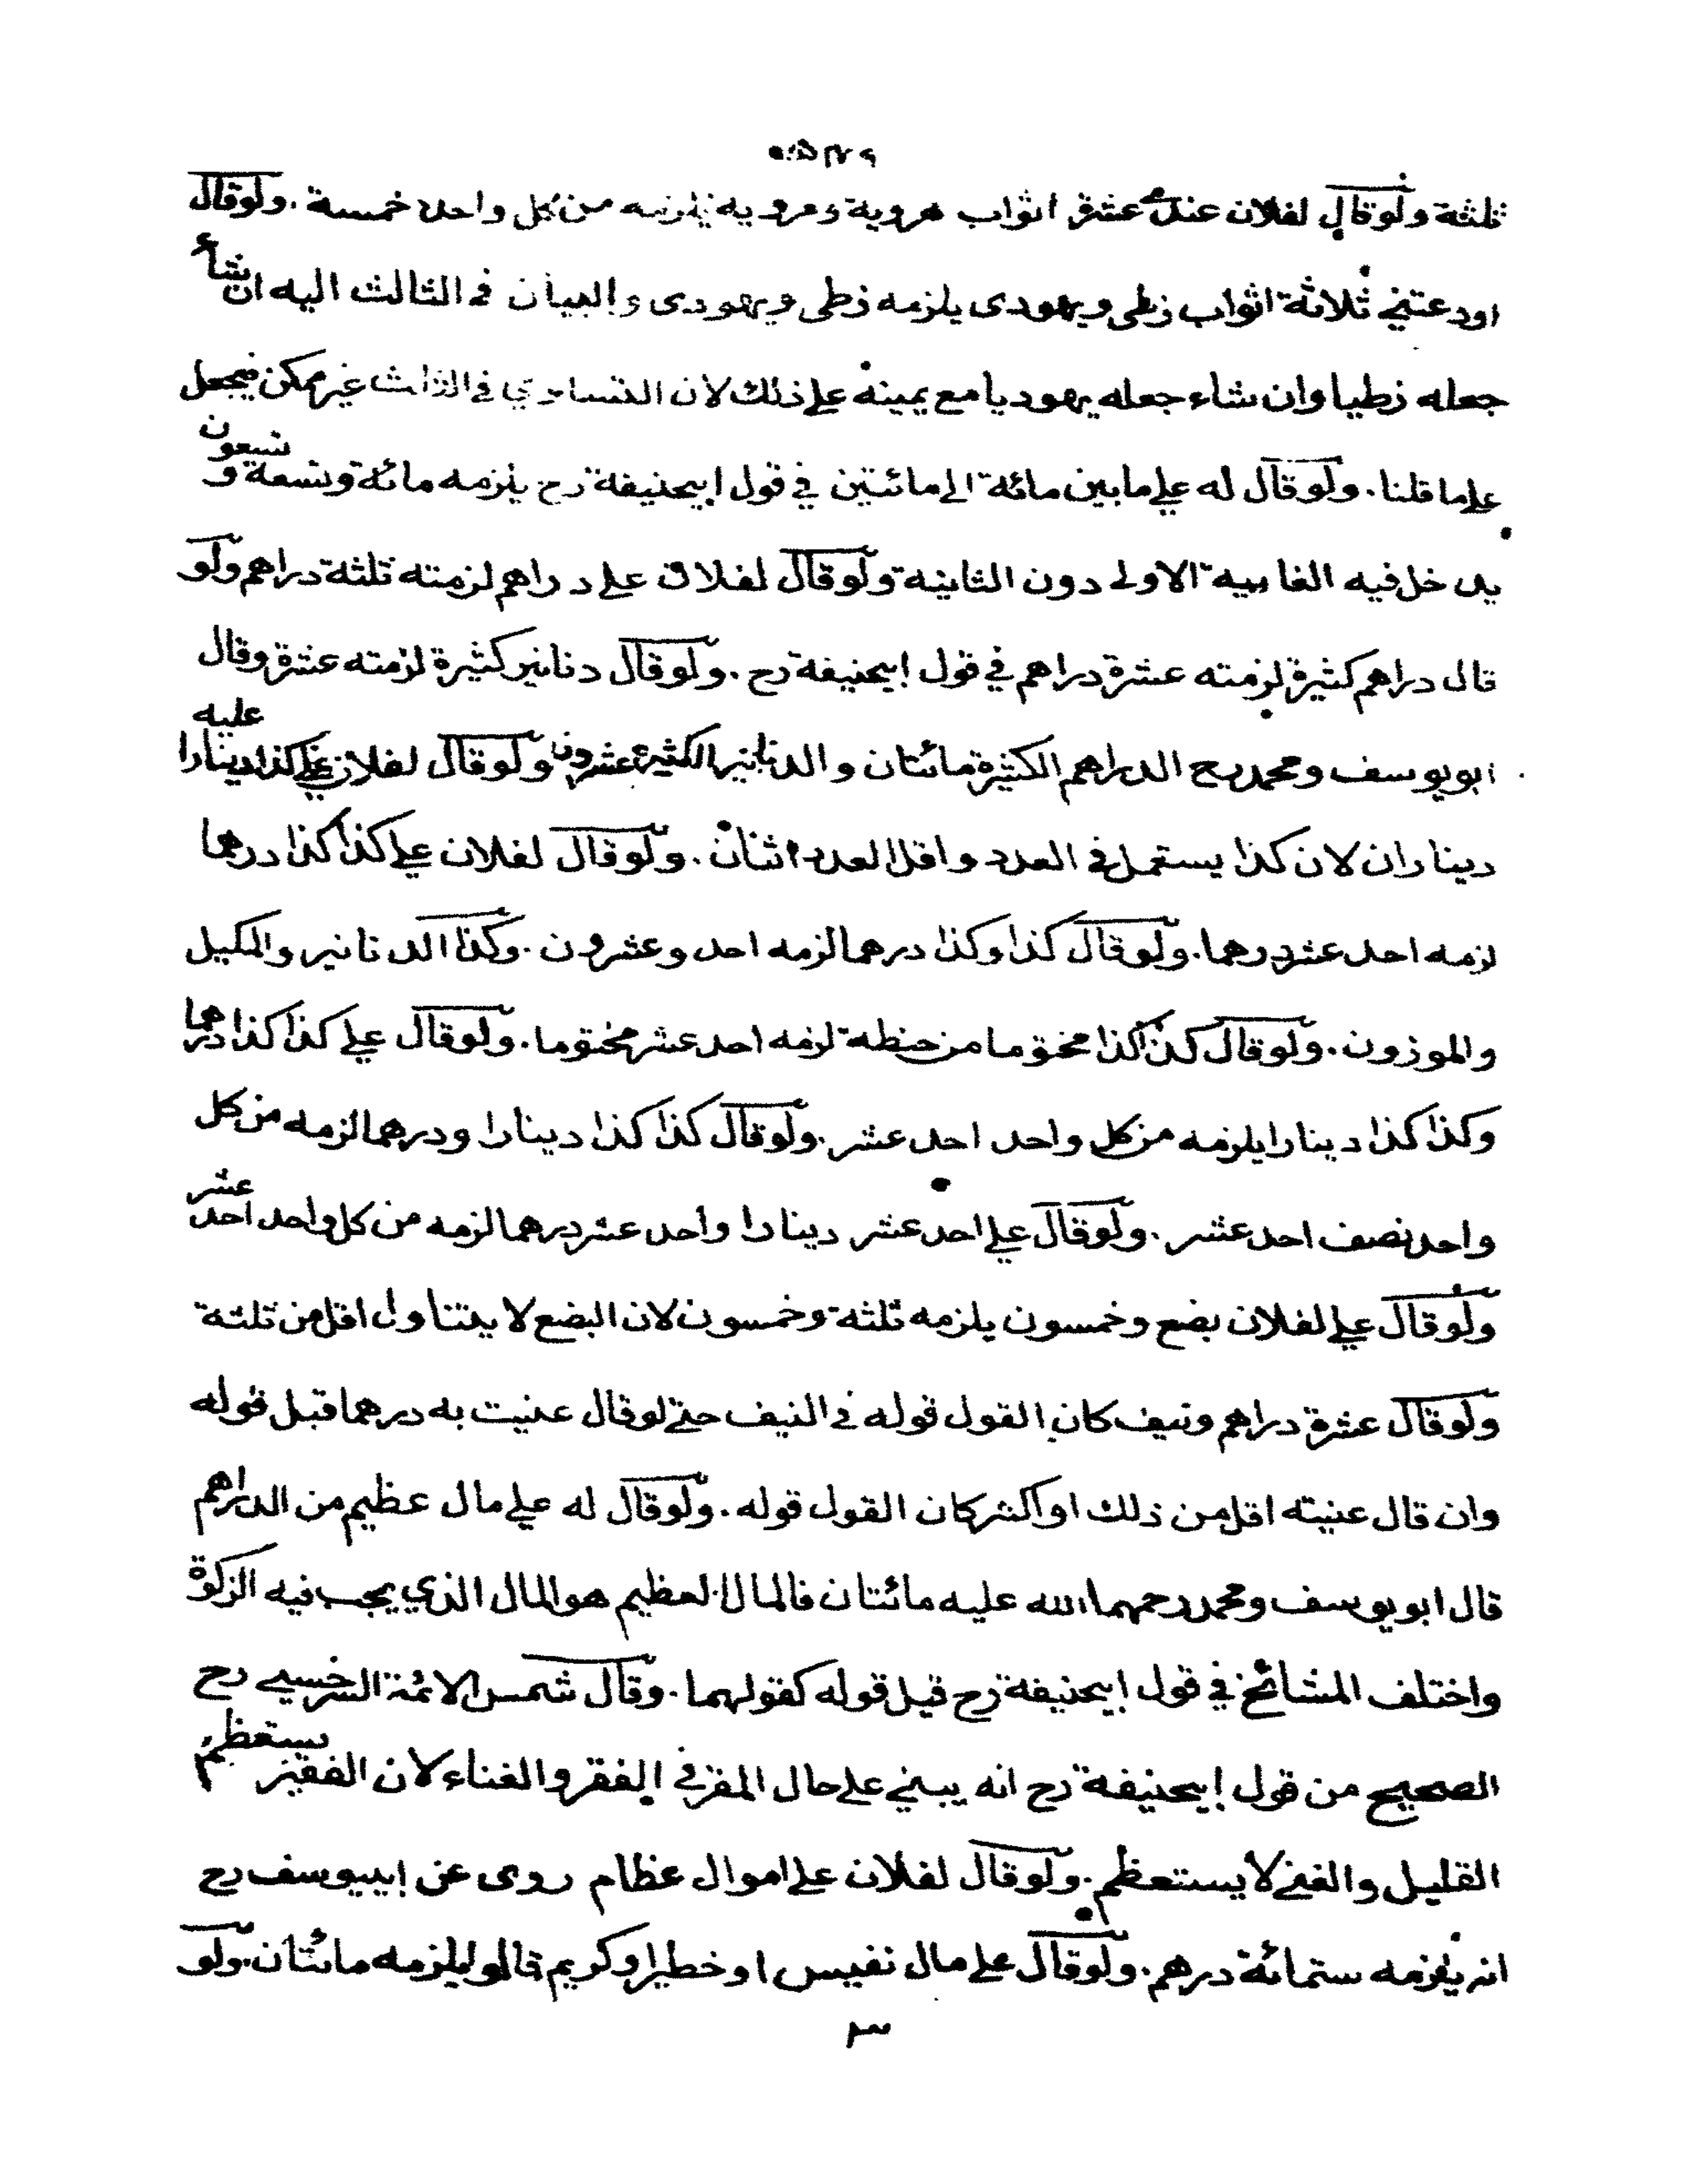 ثلثة ولوقال لفلان عندى عشرة اثواب هروية ومروية يلزمه من كل واحد خمسة . ولوقال
اودعتني ثلاثة اثواب زطى ويهودى يلزمه زطى ويهودى والبيان في الثالث اليه ان شاء
جعله زطيا وان شاء جعله يهوديا مع يمينه علے ذلك لان التساوي في الثالث غير ممكن فيجعل
علے ما قلنا . ولوقال له علے ما بين مائة الے مائتين في قول ابيحنيفة رح يلزمه مائة وتسعة وتسعون
يدخل فيه الغاية الاولے دون الثانية ولوقال لفلان علے دراهم لزمته ثلثة دراهم ولو
قال دراهم كثيرة لزمته عشرة دراهم في قول ابيحنيفة رح . ولوقال دنانير كثيرة لزمته عشرة وقال
ابويوسف ومحمد رح الدراهم الكثيرة مائتان والدنانير الكثيرة عشرون ولوقال لفلان علے كذا دينارا عليه
ديناران لان كذا يستعمل في العدد واقل العدد اثنان . ولوقال لفلان علے كذا كذا درهما
لزمه احد عشر درهما . ولوقال كذا وكذا درهما لزمه احد وعشرون . وكذا الدنانير والمكيل
والموزون . ولوقال كذا كذا مختوما من حنطة لزمه احد عشر مختوما . ولوقال علے كذا كذا درهما
وكذا كذا دينارا يلزمه من كل واحد احد عشر . ولوقال كذا كذا دينارا ودرهما لزمه من كل
واحد نصف احد عشر . ولوقال علے احد عشر دينارا واحد عشر درهما لزمه من كل واحد احد عشر
ولوقال علے لفلان بضع وخمسون يلزمه ثلثة وخمسون لان البضع لا يتناول اقل من ثلثة
ولوقال عشرة دراهم ونيف كان القول قوله في النيف حتے لوقال عنيت به درهما قبل قوله
وان قال عنيته اقل من ذلك او اكثر كان القول قوله . ولوقال له علے مال عظيم من الدراهم
قال ابويوسف ومحمد رحمهما الله عليه مائتان فالمال العظيم هو المال الذي يجب فيه الزكوة
واختلف المشائخ في قول ابيحنيفة رح قيل قوله كقولهما . وقال شمس الائمة السرخسي رح
الصحيح من قول ابيحنيفة رح انه يبني علے حال المقر في الفقر والغناء لان الفقير يستعظم
القليل والغني لا يستعظم . ولوقال لفلان علے اموال عظام روى عن ابييوسف رح
انه يلزمه ستمائة درهم . ولوقال علے مال نفيس او خطير او كريم قالوا يلزمه مائتان . ولو